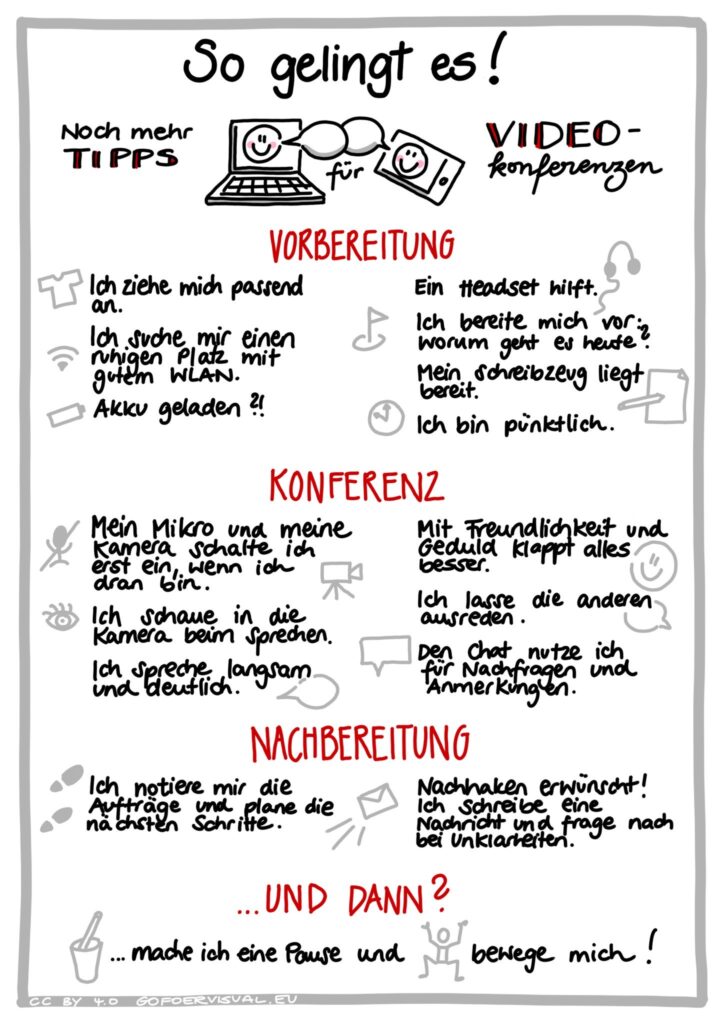 So gelingt es!
Noch mehr
TIPPS
für
VIDEO-
konferenzen
VORBEREITUNG
Ich ziehe mich passend
an.
Ich suche mir einen
ruhigen Platz mit
gutem WLAN.
Akku geladen?!
Ein Headset hilft.
Ich bereite mich vor:
worum geht es heute?
Mein Schreibzeug liegt
bereit.
Ich bin pünktlich.
KONFERENZ
Mein Mikro und meine
Kamera schalte ich
erst ein, wenn ich
dran bin.
Ich schaue in die
Kamera beim Sprechen.
Ich spreche langsam
und deutlich.
Mit Freundlichkeit und
Geduld klappt alles
besser.
Ich lasse die anderen
ausreden.
Den Chat nutze ich
für Nachfragen und
Anmerkungen.
NACHBEREITUNG
Ich notiere mir die
Aufträge und plane die
nächsten Schritte.
Nachhaken erwünscht!
Ich schreibe eine
Nachricht und frage nach
bei Unklarheiten.
...UND DANN?
...mache ich eine Pause und bewege mich!
CC BY 4.0 GOFOERVISUAL.EU